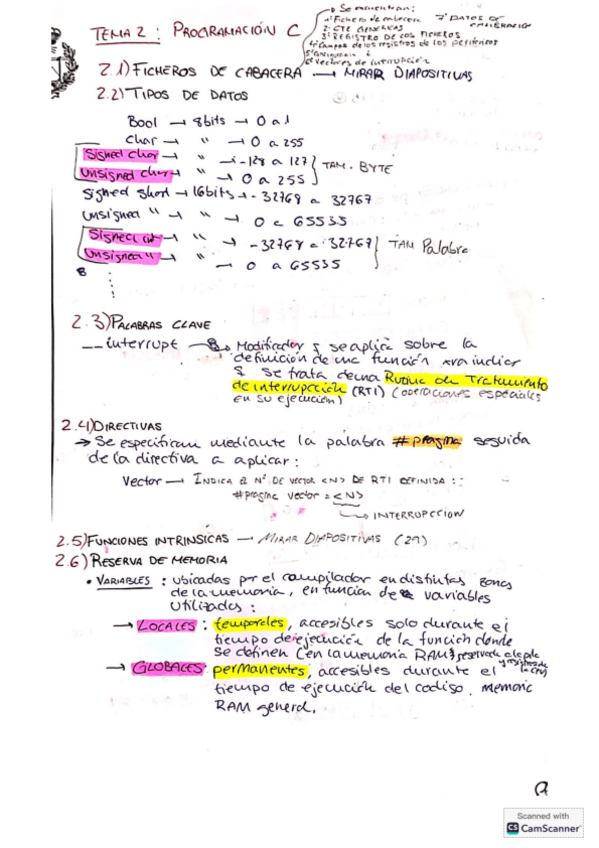 Se encuentran:
1º Fichero de cabecera 7º DATOS DE CALIBRACIÓN
2º CTE GENÉRICAS
3º REGISTRO DE LOS FICHEROS
4º Campos de los registros de los periféricos
6º Vectores de interrupción
TEMA 2: PROGRAMACIÓN C
2.1) FICHEROS DE CABACERA → MIRAR DIAPOSITIVAS
2.2) TIPOS DE DATOS
Bool → 8bits → 0 a 1
Char → " → 0 a 255
Signed char → " → -128 a 127
TAM. BYTE
Unsigned char → " → 0 a 255
Signed short → 16bits → -32768 a 32767
Unsigned " → " → 0 a 65535
Signed int → " → -32768 a 32767
TAM Palabra
Unsigned " → " → 0 a 65535
2.3) PALABRAS CLAVE
__interrupt → Modificador q se aplica sobre la
definición de una función para indicar
q se trata de una Rutina de Tratamiento
de interrupción (RTI) (operaciones especiales
en su ejecución)
2.4) DIRECTIVAS
→ Se especifican mediante la palabra #pragma seguida
de la directiva a aplicar:
Vector → INDICA EL Nº DE VECTOR <N> DE RTI DEFINIDA::
#pragma vector = <N>
→ INTERRUPCCION
2.5) FUNCIONES INTRINSICAS → MIRAR DIAPOSITIVAS (29)
2.6) RESERVA DE MEMORIA
• VARIABLES: ubicadas por el compilador en distintas zonas
de la memoria, en función de variables
utilizadas:
→ LOCALES: temporales, accesibles solo durante el
tiempo de ejecución de la función donde
se definen (en la memoria RAM reservada a la pila
y registros de la CPU)
→ GLOBALES: permanentes, accesibles durante el
tiempo de ejecución del codigo. memoria
RAM general.
Scanned with
CS CamScanner